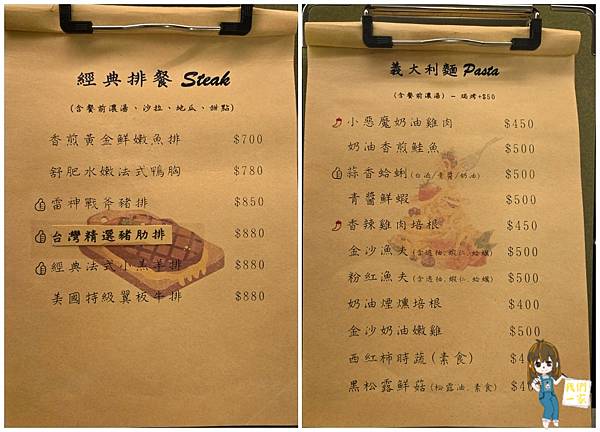 經典排餐 Steak
(含餐前濃湯、沙拉、地瓜、甜點)
香煎黃金鮮嫩魚排 $700
舒肥水嫩法式鴨胸 $780
雷神戰斧豬排 $850
台灣精選豬肋排 $880
經典法式小羔羊排 $880
美國特級翼板牛排 $880
義大利麵 Pasta
(含餐前濃湯) - 焗烤+$50
小惡魔奶油雞肉 $450
奶油香煎鮭魚 $500
蒜香蛤蜊(白酒/青醬/奶油) $500
青醬鮮蝦 $500
香辣雞肉培根 $450
金沙漁夫(含透抽.蝦仁.蛤蠣) $500
粉紅漁夫(含透抽.蝦仁.蛤蠣) $500
奶油煙燻培根 $400
金沙奶油嫩雞 $500
西紅柿時蔬(素食)
黑松露鮮菇(松露油.素食)
我們一家